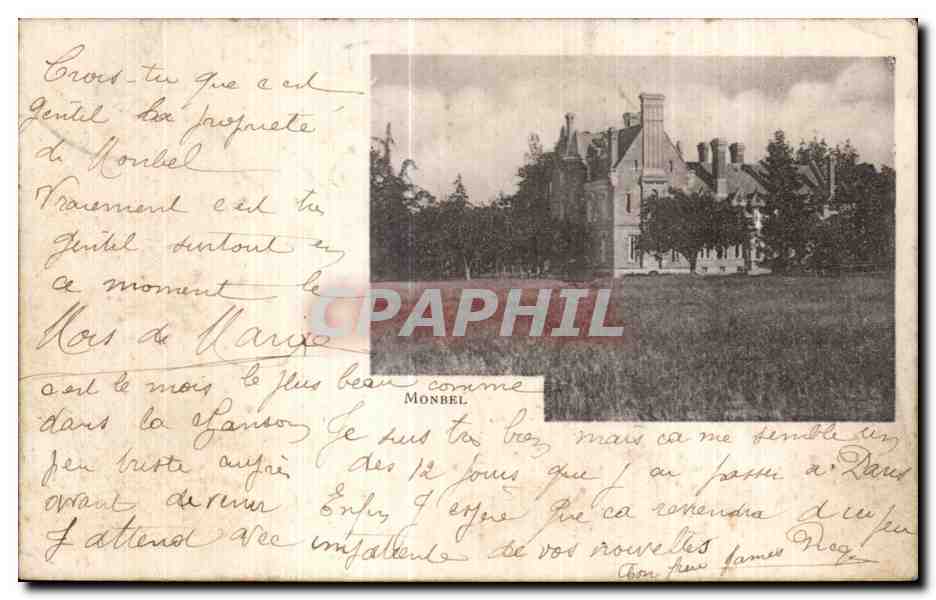 Crois-tu que c'est
gentil la propriété
de Monbel
Vraiement c'est très
gentil surtout en
ce moment le
Mois de Marie
c'est le mois le plus beau comme
MONBEL
dans la chanson Je suis très bien mais ca me semble un
peu triste auprès des 12 jours que j'ai passé à Paris
avant de venir Enfin j'espère que ca reviendra d'ici peu
J'attend avec impatiente de vos nouvelles
Ton frère James
CPAPHIL